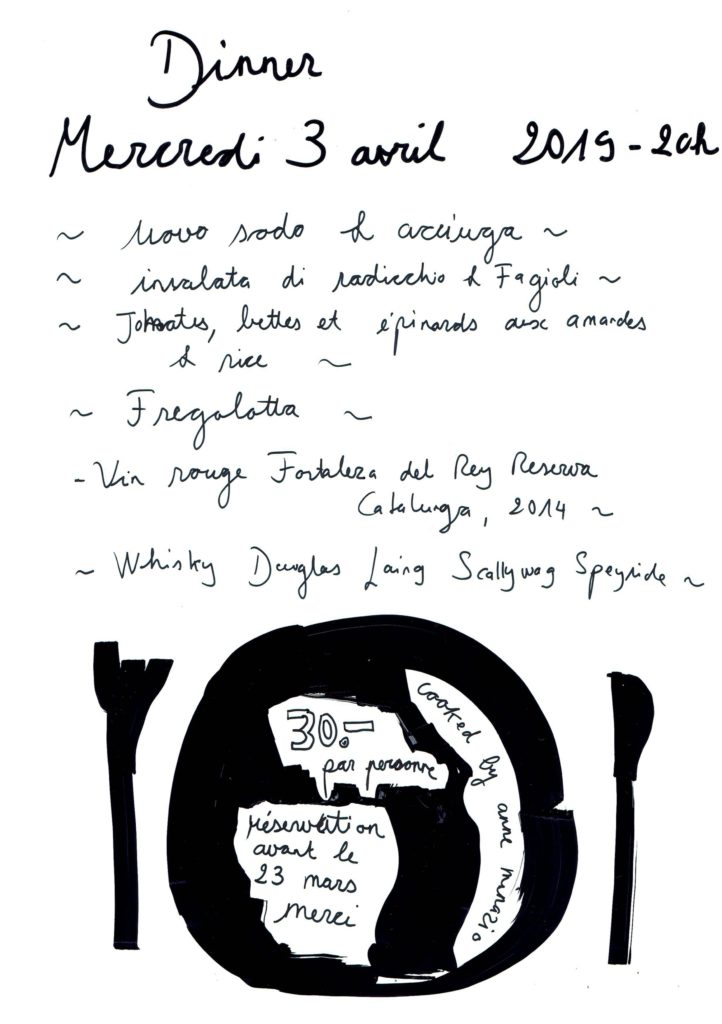 Dinner
Mercredi 3 avril 2019 - 20h
~ Uovo sodo & acciuga ~
~ insalata di radicchio & Fagioli ~
~ Tomates, bettes et épinards aux amandes
& rice ~
~ Fregolotta ~
- Vin rouge Fortaleza del Rey Reserva
Catalunya, 2014 ~
~ Whisky Douglas Laing Scallywag Speyside ~
30.-
par personne
cooked by anne minazio
réservation
avant le
23 mars
merci